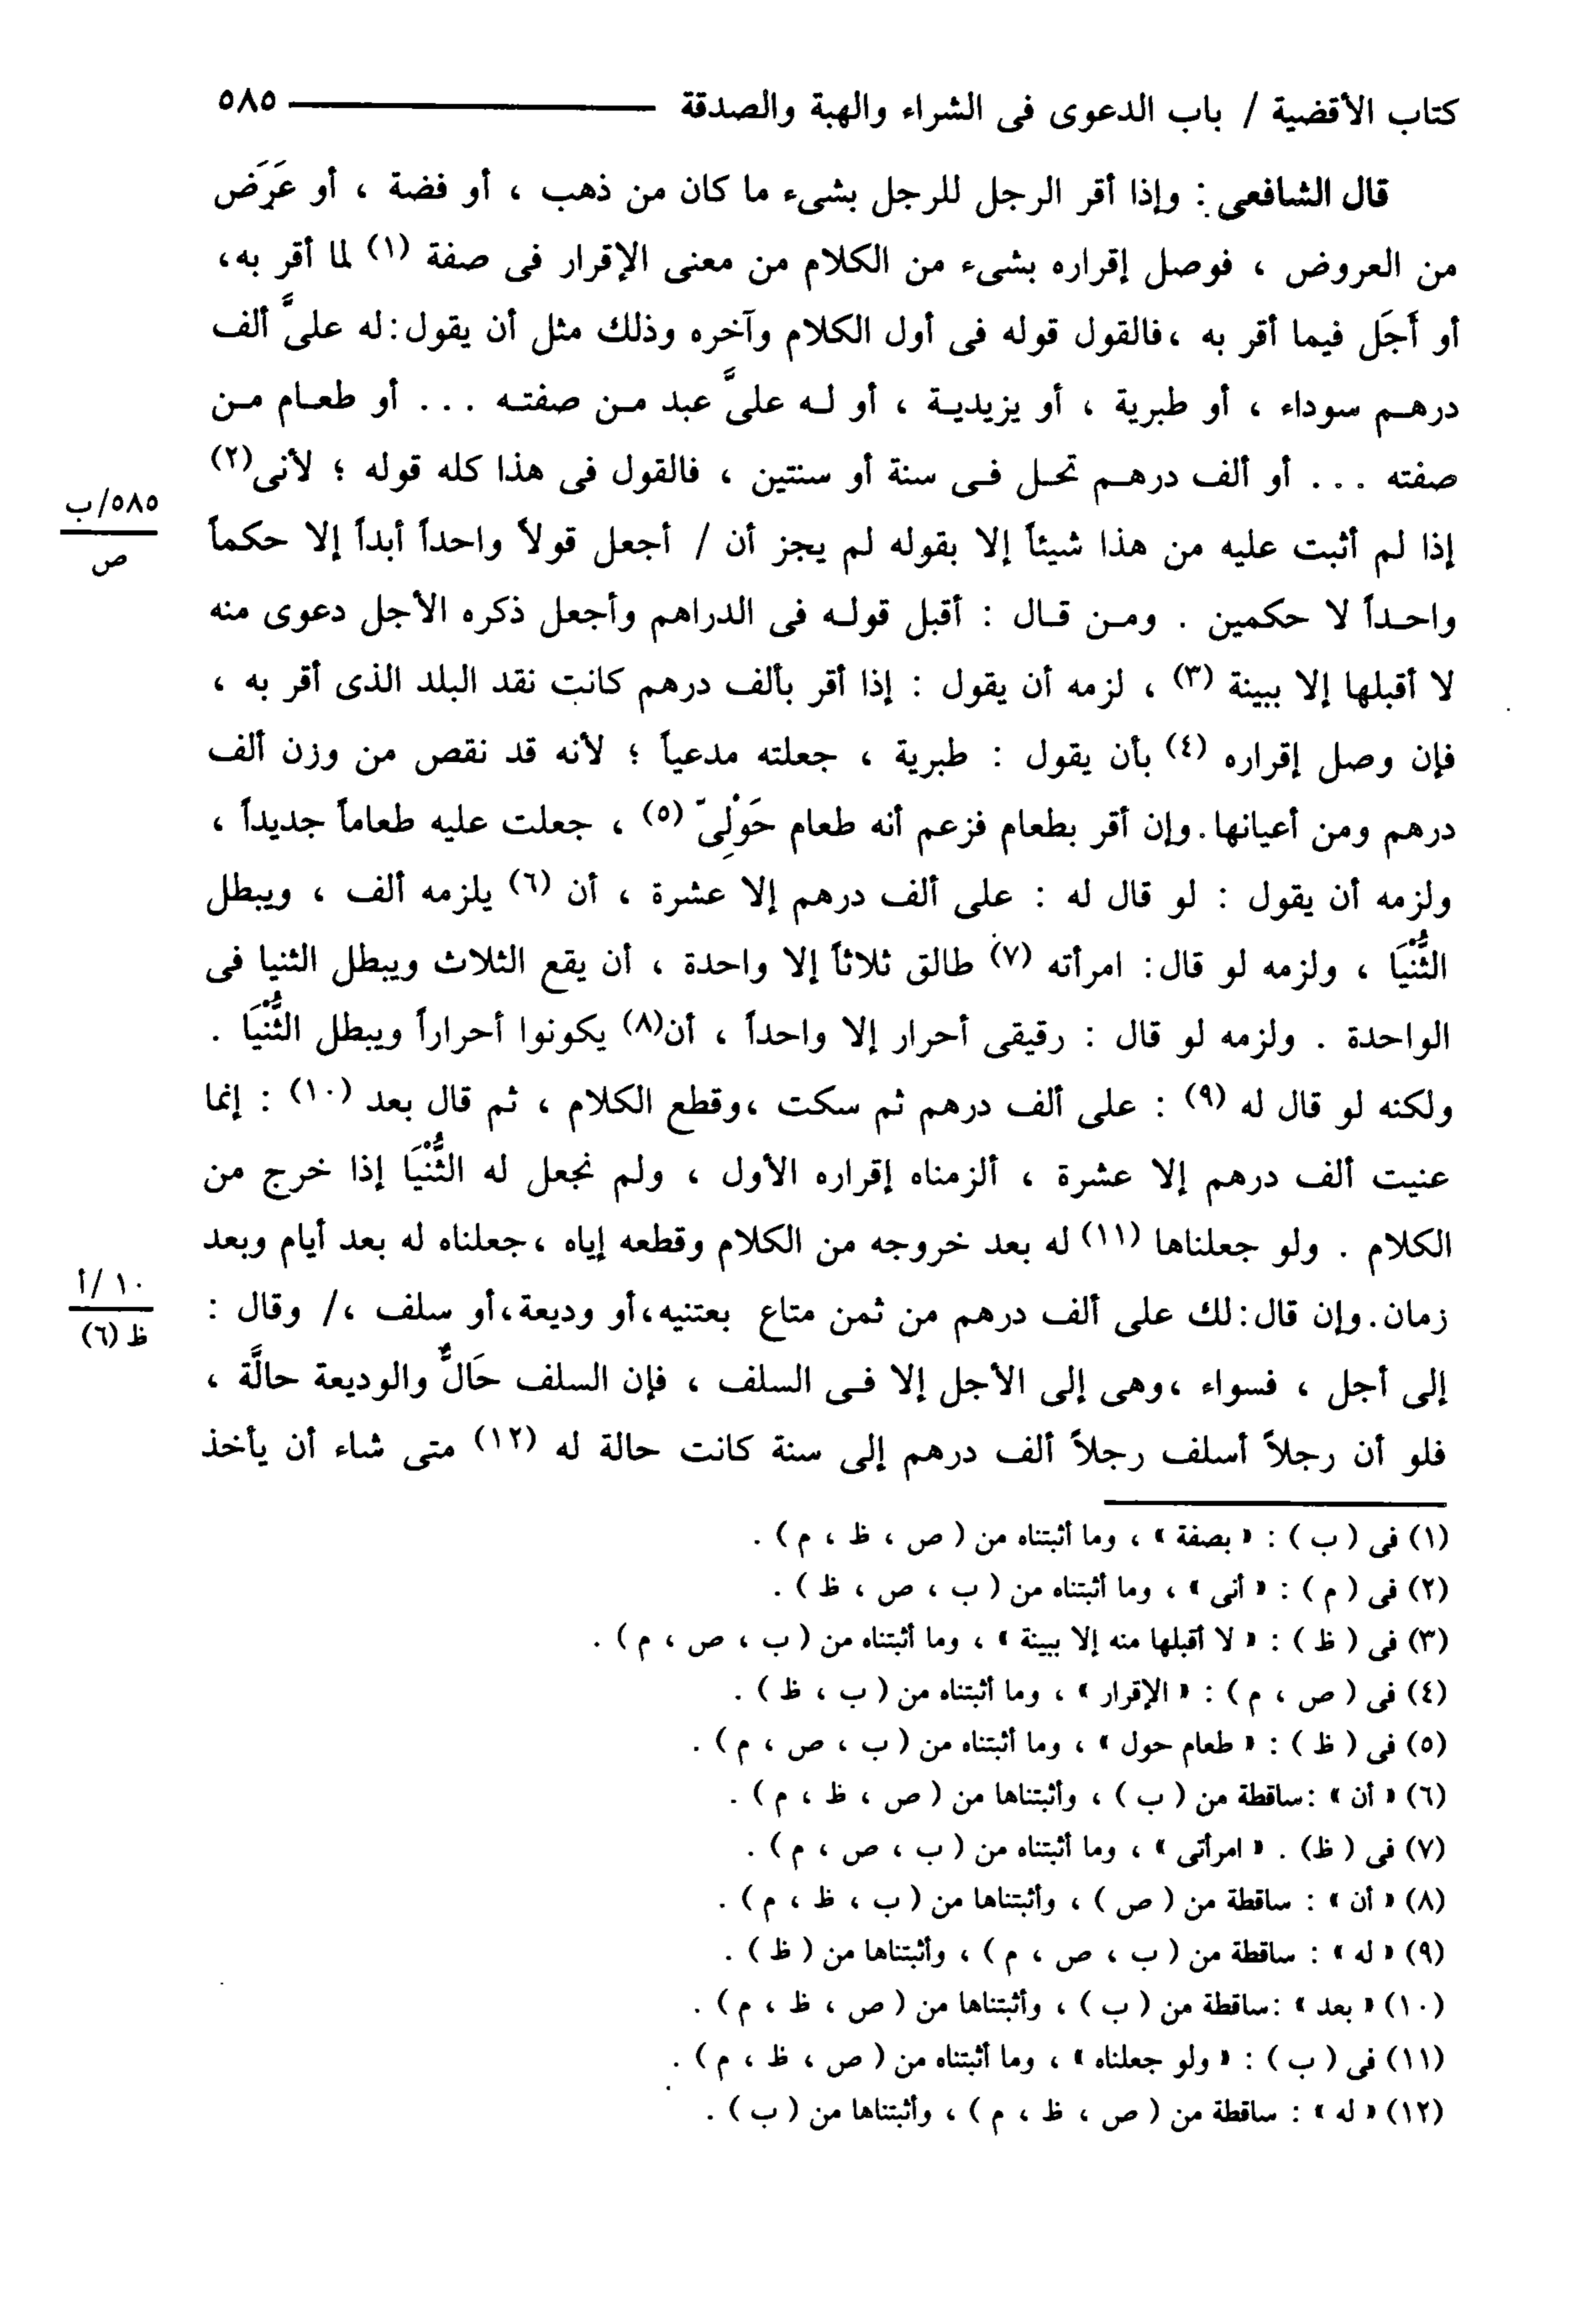 كتاب الأقضية / باب الدعوى فى الشراء والهبة والصدقة ــــــــــــــ ٥٨٥
قال الشافعى : وإذا أقر الرجل للرجل بشىء ما كان من ذهب ، أو فضة ، أو عَرَض
من العروض ، فوصل إقراره بشىء من الكلام من معنى الإقرار فى صفة (١) لما أقر به،
أو أَجَل فيما أقر به ،فالقول قوله فى أول الكلام وآخره وذلك مثل أن يقول:له علىَّ ألف
درهـم سوداء ، أو طبرية ، أو يزيديـة ، أو لـه علىَّ عبد مـن صفتـه ... أو طعـام مـن
صفته ... أو ألف درهـم تحـل فـى سنة أو سنتين ، فالقول فى هذا كله قوله ؛ لأنى(٢)
٥٨٥/ب
ص
إذا لم أثبت عليه من هذا شيئاً إلا بقوله لم يجز أن / أجعل قولاً واحداً أبداً إلا حكماً
واحـداً لا حكمين . ومـن قـال : أقبل قولـه فى الدراهم وأجعل ذكره الأجل دعوى منه
لا أقبلها إلا ببينة (٣) ، لزمه أن يقول : إذا أقر بألف درهم كانت نقد البلد الذى أقر به ،
فإن وصل إقراره (٤) بأن يقول : طبرية ، جعلته مدعياً ؛ لأنه قد نقص من وزن ألف
درهم ومن أعيانها.وإن أقر بطعام فزعم أنه طعام حَوْلِىّ (٥) ، جعلت عليه طعاماً جديداً ،
ولزمه أن يقول : لو قال له : على ألف درهم إلا عشرة ، أن (٦) يلزمه ألف ، ويبطل
الثُّنْيَا ، ولزمه لو قال: امرأته (٧) طالق ثلاثاً إلا واحدة ، أن يقع الثلاث ويبطل الثنيا فى
الواحدة . ولزمه لو قال : رقيقى أحرار إلا واحداً ، أن(٨) يكونوا أحراراً ويبطل الثُّنْيَا .
ولكنه لو قال له (٩) : على ألف درهم ثم سكت ،وقطع الكلام ، ثم قال بعد (١٠) : إنما
عنيت ألف درهم إلا عشرة ، ألزمناه إقراره الأول ، ولم نجعل له الثُّنْيَا إذا خرج من
الكلام . ولو جعلناها (١١) له بعد خروجه من الكلام وقطعه إياه ،جعلناه له بعد أيام وبعد
١٠/أ
ظ (٦)
زمان.وإن قال:لك على ألف درهم من ثمن متاع بعتنيه،أو وديعة،أو سلف ،/ وقال :
إلى أجل ، فسواء ،وهى إلى الأجل إلا فـى السلف ، فإن السلف حَالٌّ والوديعة حالَّة ،
فلو أن رجلاً أسلف رجلاً ألف درهم إلى سنة كانت حالة له (١٢) متى شاء أن يأخذ
(١) فى ( ب ) : « بصفة » ، وما أثبتناه من ( ص ، ظ ، م ) .
(٢) فى ( م ) : « أنى » ، وما أثبتناه من ( ب ، ص ، ظ ) .
(٣) فى ( ظ ) : « لا أقبلها منه إلا ببينة » ، وما أثبتناه من ( ب ، ص ، م ) .
(٤) فى ( ص ، م ) : « الإقرار » ، وما أثبتناه من ( ب ، ظ ) .
(٥) فى ( ظ ) : « طعام حول » ، وما أثبتناه من ( ب ، ص ، م ) .
(٦) « أن » :ساقطة من ( ب ) ، وأثبتناها من ( ص ، ظ ، م ) .
(٧) فى ( ظ) . « امرأتى » ، وما أثبتناه من ( ب ، ص ، م ) .
(٨) « أن » : ساقطة من ( ص ) ، وأثبتناها من ( ب ، ظ ، م ) .
(٩) « له » : ساقطة من ( ب ، ص ، م ) ، وأثبتناها من ( ظ ) .
(١٠) « بعد » :ساقطة من ( ب ) ، وأثبتناها من ( ص ، ظ ، م ) .
(١١) فى ( ب ) : « ولو جعلناه » ، وما أثبتناه من ( ص ، ظ ، م ) .
(١٢) « له » : ساقطة من ( ص ، ظ ، م ) ، وأثبتناها من ( ب ) .